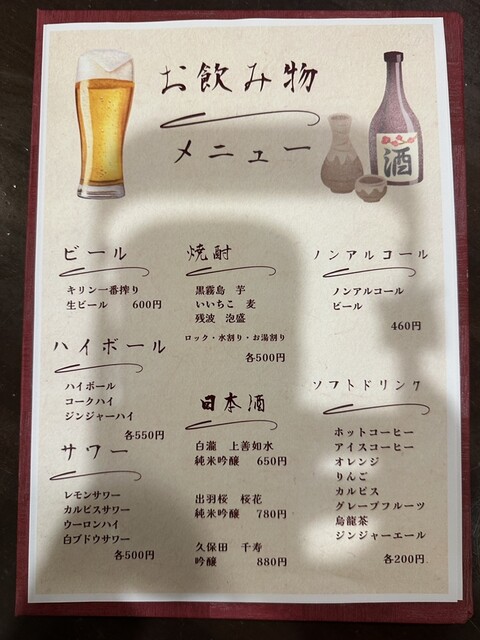 お飲み物
メニュー
酒
ビール
キリン一番搾り
生ビール 600円
ハイボール
ハイボール
コークハイ
ジンジャーハイ
各550円
サワー
レモンサワー
カルピスサワー
ウーロンハイ
白ブドウサワー
各500円
焼酎
黒霧島 芋
いいちこ 麦
残波 泡盛
ロック・水割り・お湯割り
各500円
日本酒
白瀧 上善如水
純米吟醸 650円
出羽桜 桜花
純米吟醸 780円
久保田 千寿
吟醸 880円
ノンアルコール
ノンアルコール
ビール
460円
ソフトドリンク
ホットコーヒー
アイスコーヒー
オレンジ
りんご
カルピス
グレープフルーツ
烏龍茶
ジンジャーエール
各200円